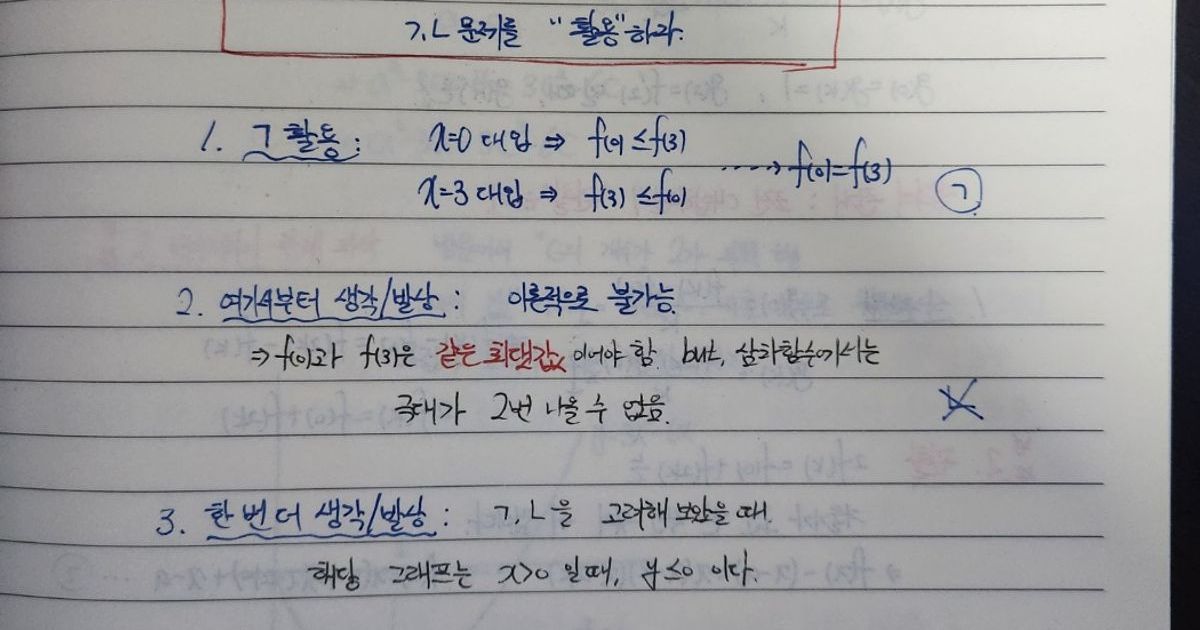 ㄱ,ㄴ 문제를 "활용"하라.
1. ㄱ 활용: x=0 대입 ⇒ f(0) ≤ f(3)
x=3 대입 ⇒ f(3) ≤ f(0) ····→ f(0)=f(3) ㄱ
2. 여기서부터 생각/발상: 이론적으로 불가능.
⇒ f(0)과 f(3)은 같은 최댓값 이어야 함. but, 삼차함수에서는
극대가 2번 나올 수 없음.
3. 한 번 더 생각/발상: ㄱ,ㄴ을 고려해 보았을 때
해당 그래프는 x>0 일 때, y≤0 이다.